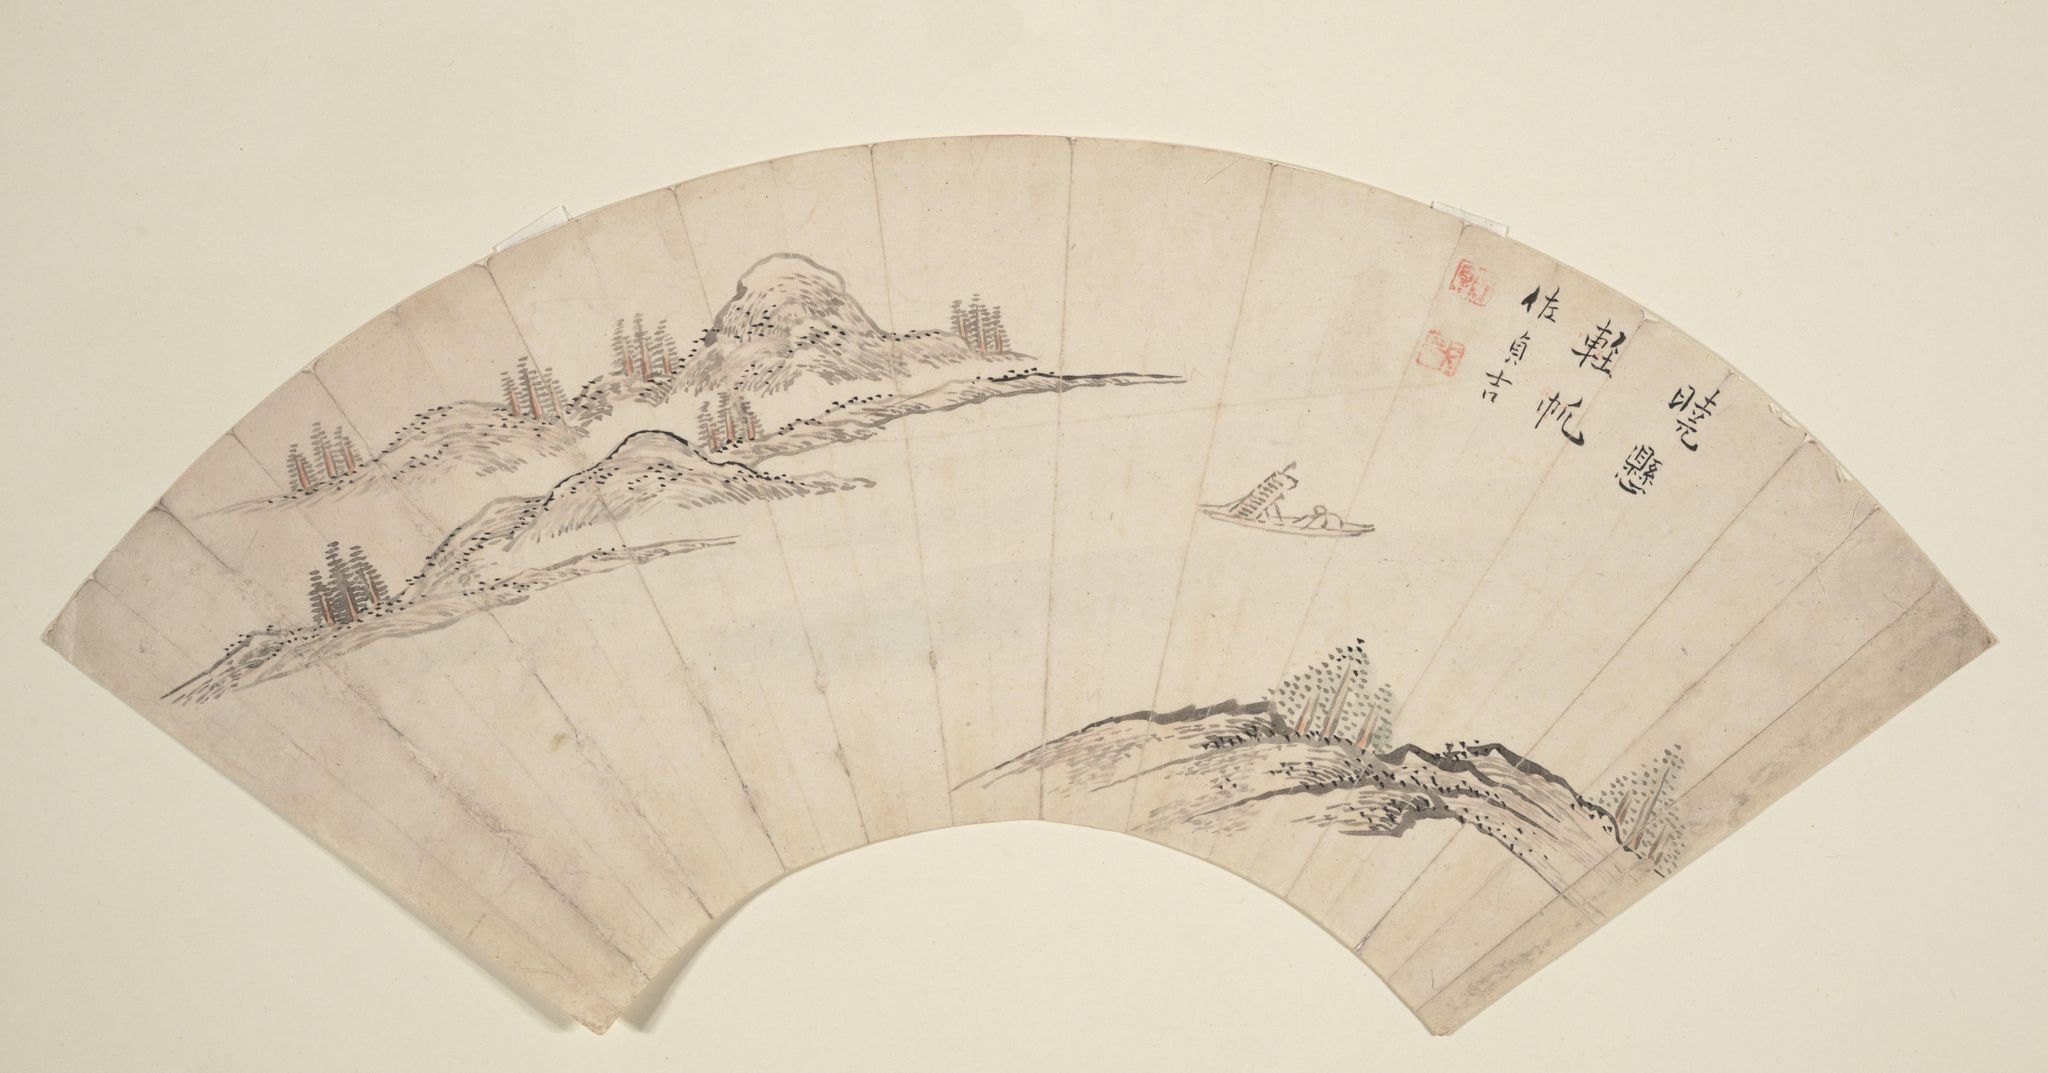 曉懸
輕帆
佐貞吉